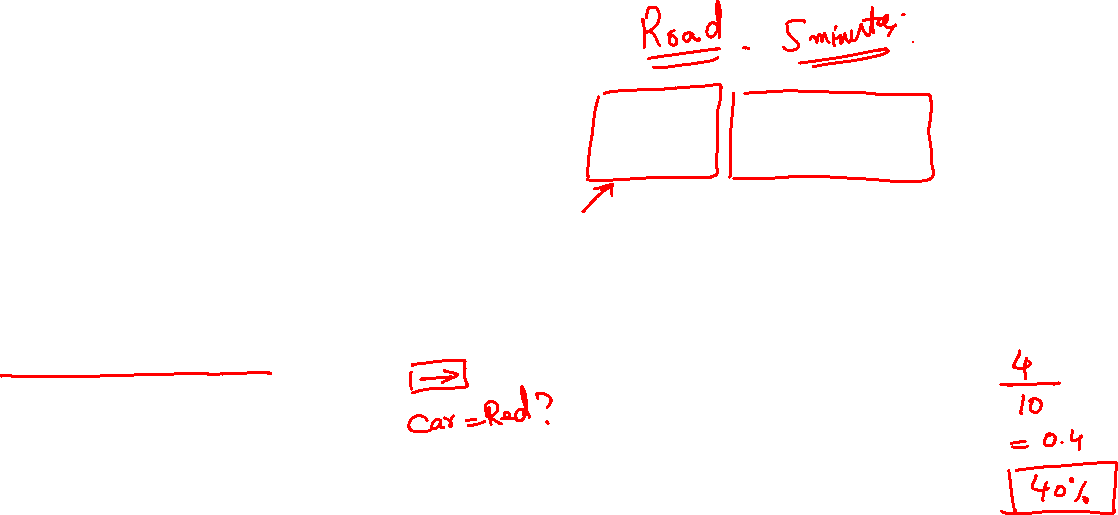 Road - 5 minutes.
Car = Red?
4
10
= 0.4
40%